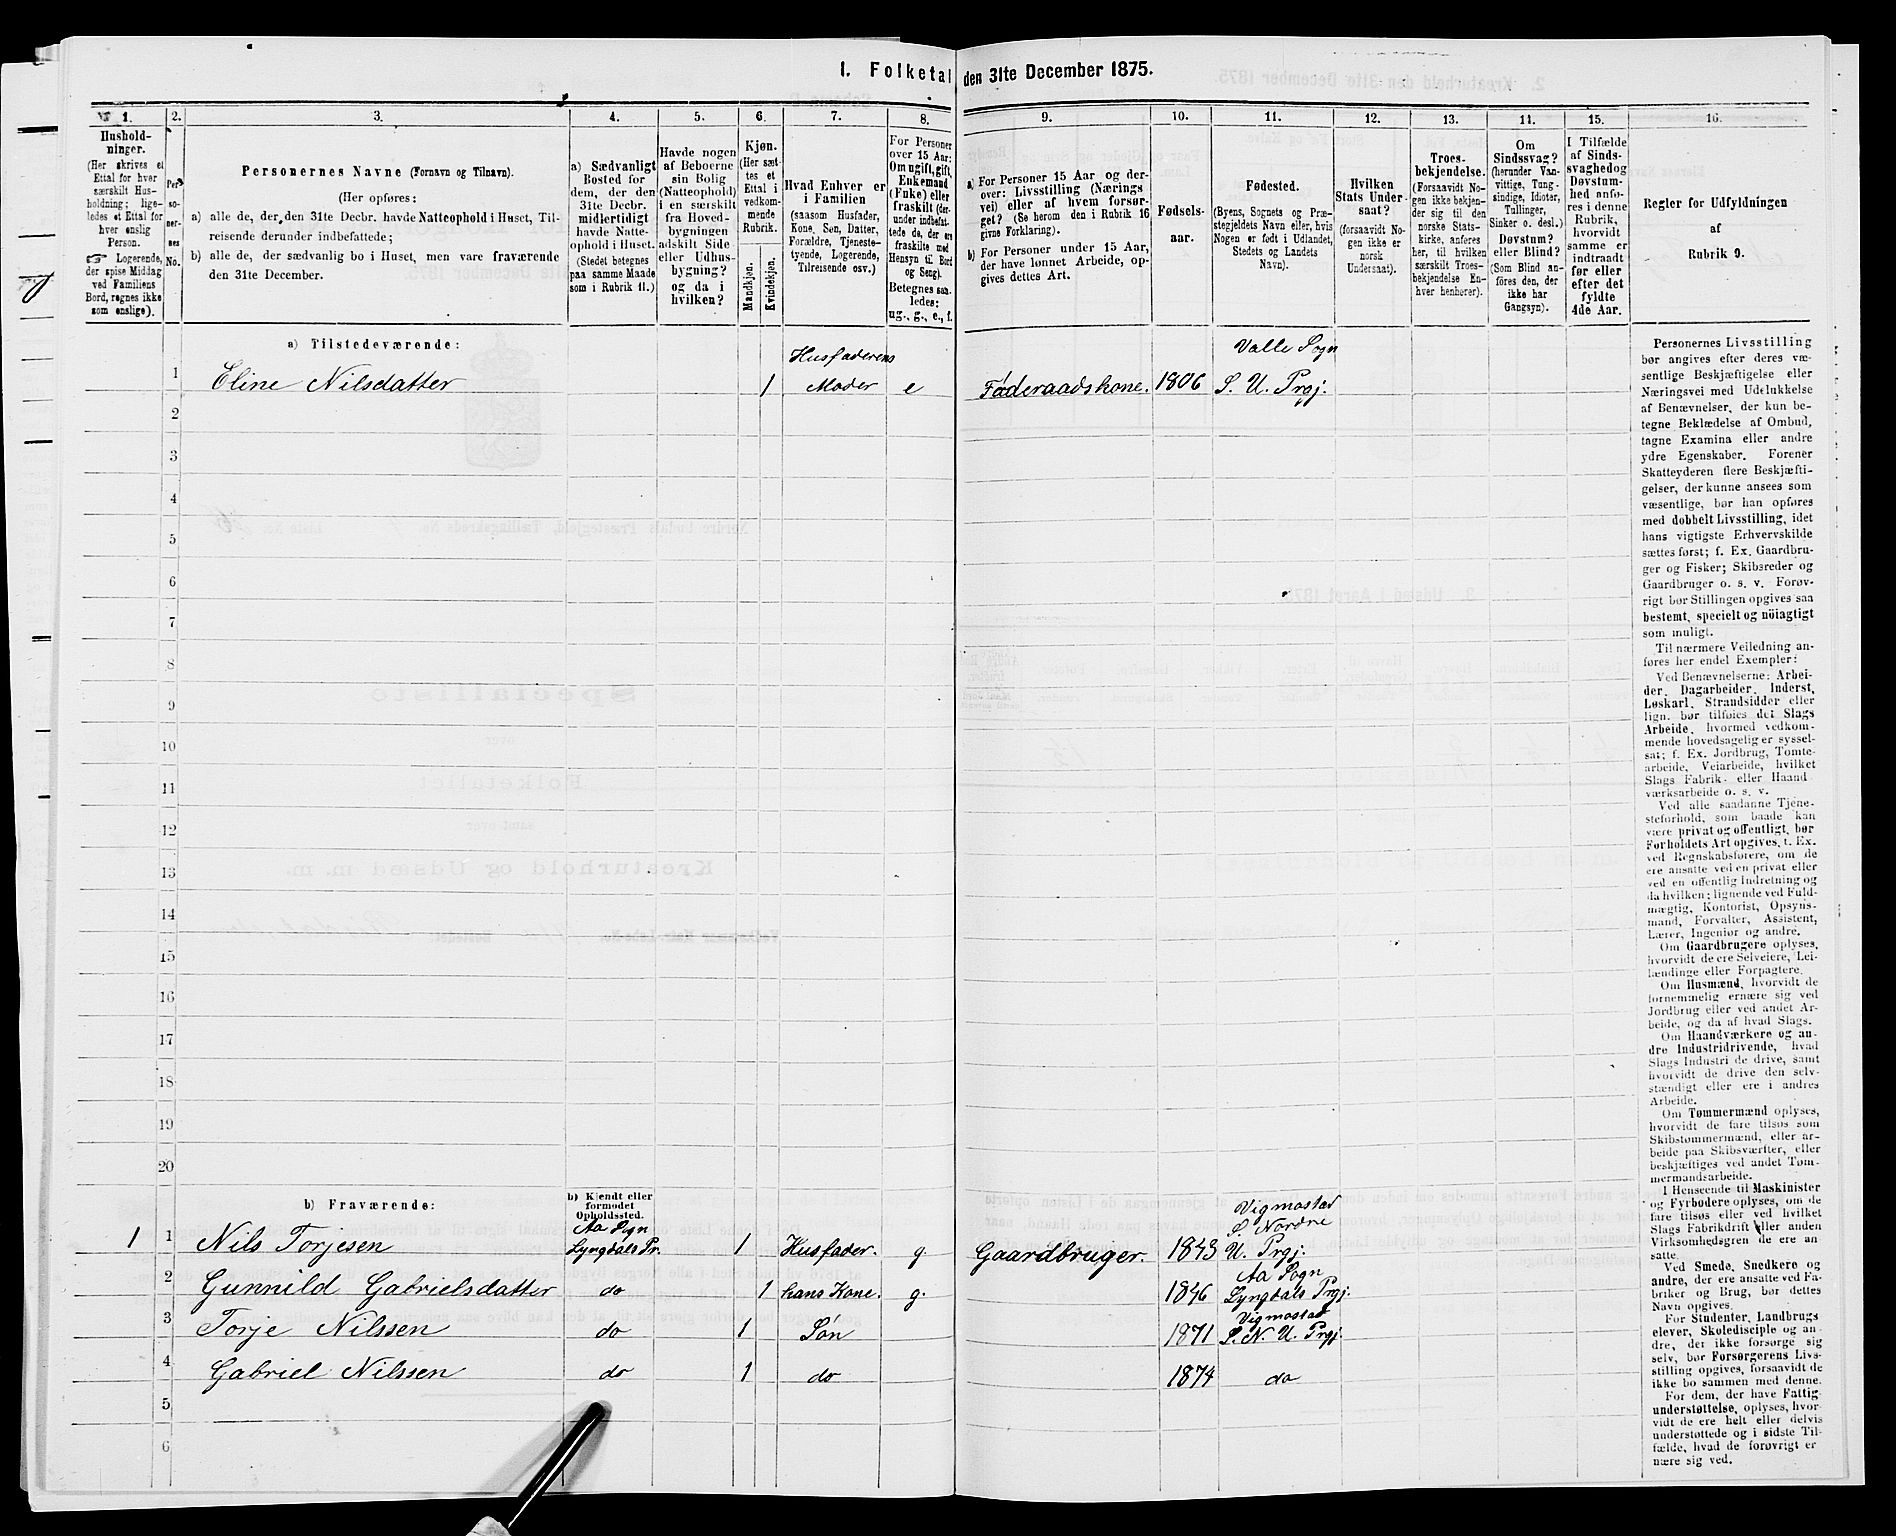 1. Folketal den 31te December 1875.
1.
Hushold-
ninger.
(Her skrives et
Ettal for hver
særskilt Hus-
holdning; lige-
ledes et Ettal for
hver enslig
Person.
☞ Logerende,
der spise Middag
ved Familiens
Bord, regnes ikke
som enslige).
2.
Per-
so-
ner-
nes
No.
3.
Personernes Navne (Fornavn og Tilnavn).
(Her opføres:
a) alle de, der den 31te Decbr. havde Natteophold i Huset, Til-
reisende derunder indbefattede;
b) alle de, der sædvanlig bo i Huset, men vare fraværende
den 31te December.
4.
a) Sædvanligt
Bosted for
dem, der den
31te Decbr.
midlertidigt
havde Natte-
ophold i Huset.
(Stedet betegnes
paa samme Maade
som i Rubrik 11.)
5.
Havde nogen
af Beboerne
sin Bolig
(Natteophold)
i en særskilt
fra Hoved-
bygningen
adskilt Side-
eller Udhus-
bygning?
og da i
hvilken?
6.
Kjøn.
(Her sæt-
tes et
Ettal i
vedkom-
mende
Rubrik.
Mandkjøn.
Kvindekjøn.
7.
Hvad Enhver er
i Familien
(saasom Husfader,
Kone, Søn, Datter,
Forældre, Tjeneste-
tyende, Logerende,
Tilreisende osv.)
8.
For Personer
over 15 Aar:
Om ugift, gift,
Enkemand
(Enke) eller
fraskilt (der-
under indbefat-
tede de, der ere
fraskilte med
Hensyn til Bord
og Seng).
Betegnes saa-
ledes:
ug., g., e., f.
9.
a) For Personer 15 Aar og der-
over: Livsstilling (Nærings
vei) eller af hvem forsør-
get? (Se herom den i Rubrik 16
givne Forklaring).
b) For Personer under 15 Aar,
der have lønnet Arbeide, op-
gives dettes Art.
10.
Fødsels-
aar.
11.
Fødested.
(Byens, Sognets og Præ-
stegjeldets Navn eller, hvis
Nogen er født i Udlandet,
Stedets og Landets
Navn).
12.
Hvilken
Stats Under-
saat?
(forsaavidt No-
gen ikke er
norsk
Undersaat).
13.
Troes-
bekjendelse.
(Forsaavidt No-
gen ikke bekjen-
der sig til den
norske Stats-
kirke, anføres
her, til hvilken
særskilt Troes-
bekjendelse En-
hver henhører).
11.
Om
Sindssvag?
(herunder Van-
vittige, Tung-
sindige, Idioter,
Tullinger,
Sinker o. desl.)
Døvstum?
eller Blind?
(Som Blind an-
føres den, der
ikke har
Gangsyn).
15.
I Tilfælde
af Sinds-
svaghed og
Døvstum-
hed anfø-
res i denne
Rubrik,
hvorvidt
samme er
indtraadt
før eller
efter det
fyldte
4de Aar.
16.
Regler for Udfyldningen
af
Rubrik 9.
a) Tilstedeværende:
1 Eline Nilsdatter 1 Husfaderens Moder e Føderaadskone. 1806 Valle Sogn S. U. Prgj.
2
3
4
5
6
7
8
9
10
11
12
13
14
15
16
17
18
19
20
b) Fraværende:
b) Kjendt eller
formodet
Opholdssted.
1 1 Nils Torjesen Aa Sogn Lyngdals Pr. 1 Husfader. g. Gaardbruger. 1843 Vigmostad S. Nordre U. Prgj.
2 Gunnild Gabrielsdatter do 1 hans Kone. g. 1846 Aa Sogn Lyngdals Prgj.
3 Torje Nilssen do 1 Søn 1871 Vigmostad S. N. U. Prgj.
4 Gabriel Nilssen do 1 do 1874 do
5
6
Personernes Livsstilling
bør angives efter deres væ-
sentlige Beskjæftigelse eller
Næringsvei med Udelukkelse
af Benævnelser, der kun be-
tegne Beklædelse af Ombud,
tagne Examina eller andre
ydre Egenskaber. Forener
Skatteyderen flere Beskjæfti-
gelser, der kunne ansees som
væsentlige, bør han opføres
med dobbelt Livsstilling, idet
hans vigtigste Erhvervskilde
sættes først; f. Ex. Gaardbru-
ger og Fisker; Skibsreder og
Gaardbruger o. s. v. Forøv-
rigt bør Stillingen opgives saa
bestemt, specielt og nöiagtigt
som muligt.
Til nærmere Veiledning an-
føres her endel Exempler:
Ved Benævnelserne: Arbei-
der, Dagarbeider, Inderst,
Løskarl, Strandsidder eller
lign. bør tilføies det Slags
Arbeide, hvormed vedkom-
mende hovedsagelig er syssel-
sat; f. Ex. Jordbrug, Tomte-
arbeide, Veiarbeide, hvilket
Slags Fabrik- eller Haand-
værksarbeide o. s. v.
Ved alle saadanne Tjene-
steforhold, som baade kan
være privat og offentligt, bør
Forholdets Art opgives, f. Ex.
ved Regnskabsførere, om de
ere ansatte ved en privat eller
ved en offentlig Indretning og
da hvilken; lignende ved Fuld-
mægtig, Kontorist, Opsyns-
mand, Forvalter, Assistent,
Lærer, Ingeniør og andre.
Om Gaardbrugere oplyses,
hvorvidt de ere Selveiere, Lei-
lændinge eller Forpagtere.
Om Husmænd, hvorvidt de
fornemmelig ernære sig ved
Jordbrug eller ved andet Ar-
beide, og da af hvad Slags.
Om Haandværkere og an-
dre Industridrivende, hvad
Slags Industri de drive, samt
hvorvidt de drive den selv-
stændigt eller ere i andres
Arbeide.
Om Tømmermænd oplyses,
hvorvidt de fare tilsøs som
Skibstømmermænd, eller ar-
beide paa Skibsværfter, eller
beskjæftiges ved andet Tøm-
mermandsarbeide.
I Henseende til Maskinister
og Fyrbødere oplyses, om de
fare tilsøs eller ved hvilket
Slags Fabrikdrift eller anden
Virksomhed de ere an-
satte.
Ved Smede, Snedkere og
andre, der ere ansatte ved Fa-
briker og Brug, bør dettes
Navn opgives.
For Studenter, Landbrugs-
elever, Skoledisciple og an-
dre, der ikke forsørge sig
selv, bør Forsørgerens Livs-
stilling opgives, forsaavidt de
ikke bo sammen med denne.
For dem, der have Fattig-
understøttelse, oplyses, hvor-
vidt de ere helt eller delvis
understøttede og i sidste Til-
fælde, hvad de forøvrigt er-
nære sig ved.